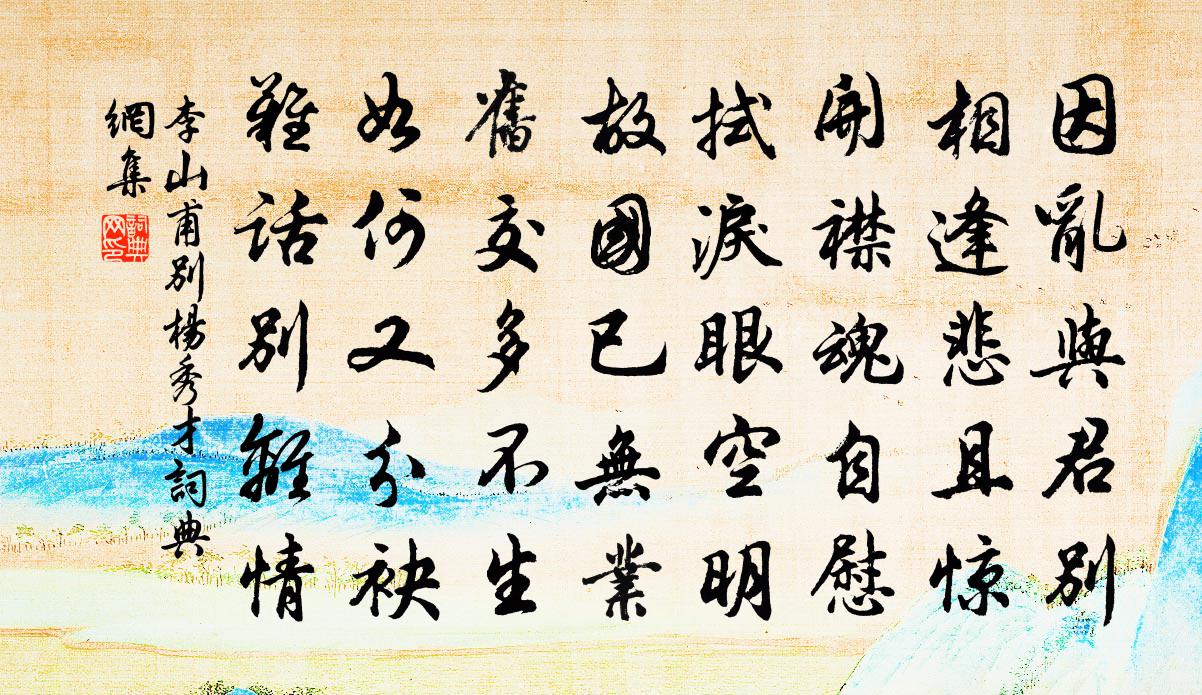 因亂與君別
相逢悲且惊
開襟魂自慰
拭淚眼空明
故國已無業
舊交多不生
如何又分袂
難話別離情
李山甫別楊秀才詞典
網集
詞典
网印